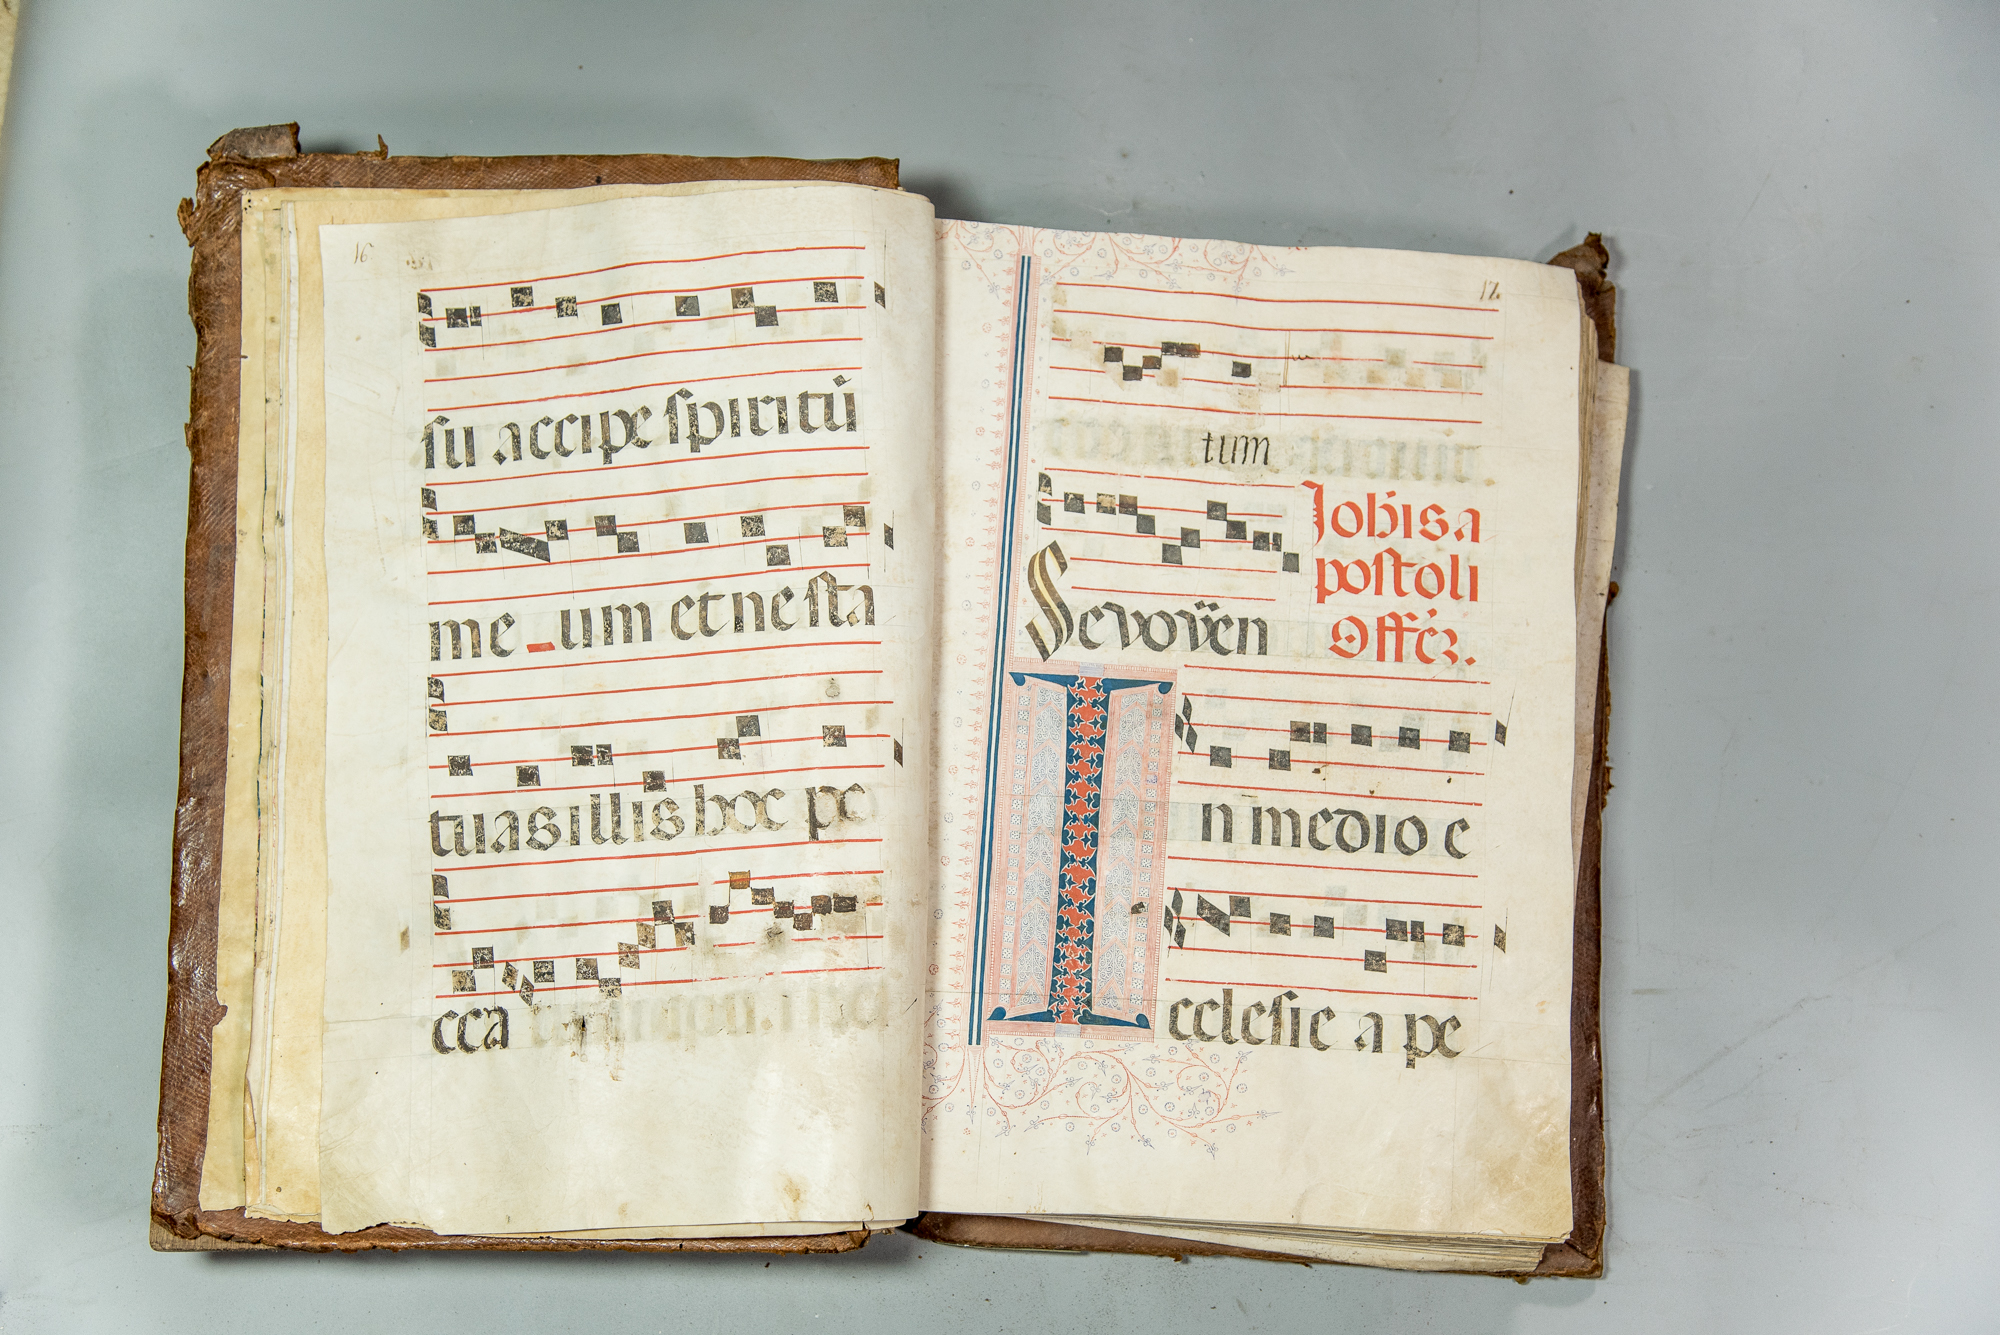 16
su accipe spiritū
me _ um et ne sta
tuas illis hoc pe
cca
17
tum
Sevovēn
Johīs a
postoli
Offéz.
In medio e
cclesie ape